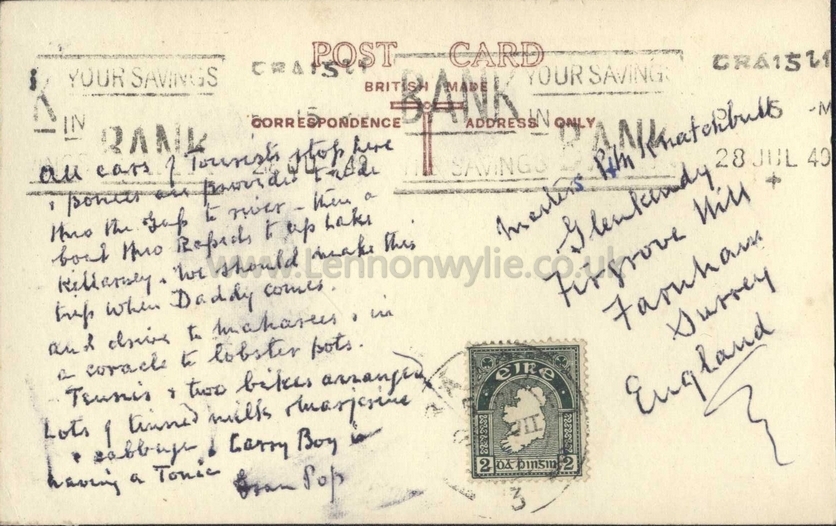 POST CARD
BRITISH MADE
CORRESPONDENCE ADDRESS ONLY
YOUR SAVINGS
IN
BANK
BANK
YOUR SAVINGS
IN
BANK
SAVINGS
28 JUL 49
All cars of Tourists stop here
& ponies are provided & ride
thro the Gap to river - then a
boat thro Rapids to up Lakes
Killarney. We should make this
trip when Daddy comes.
and drive to Maharees & in
a coracle to lobster pots.
Tennis & two bikes arranged
Lots of tinned milk & Marjerine
& cabbage & Larry Boy is
having a Tonic
Gran Pop
Masters P&M Knatchbull
Firgrove Hill
Farnham
Surrey
England
www.Lennonwylie.co.uk
éire
2 dá pinsin 2
3